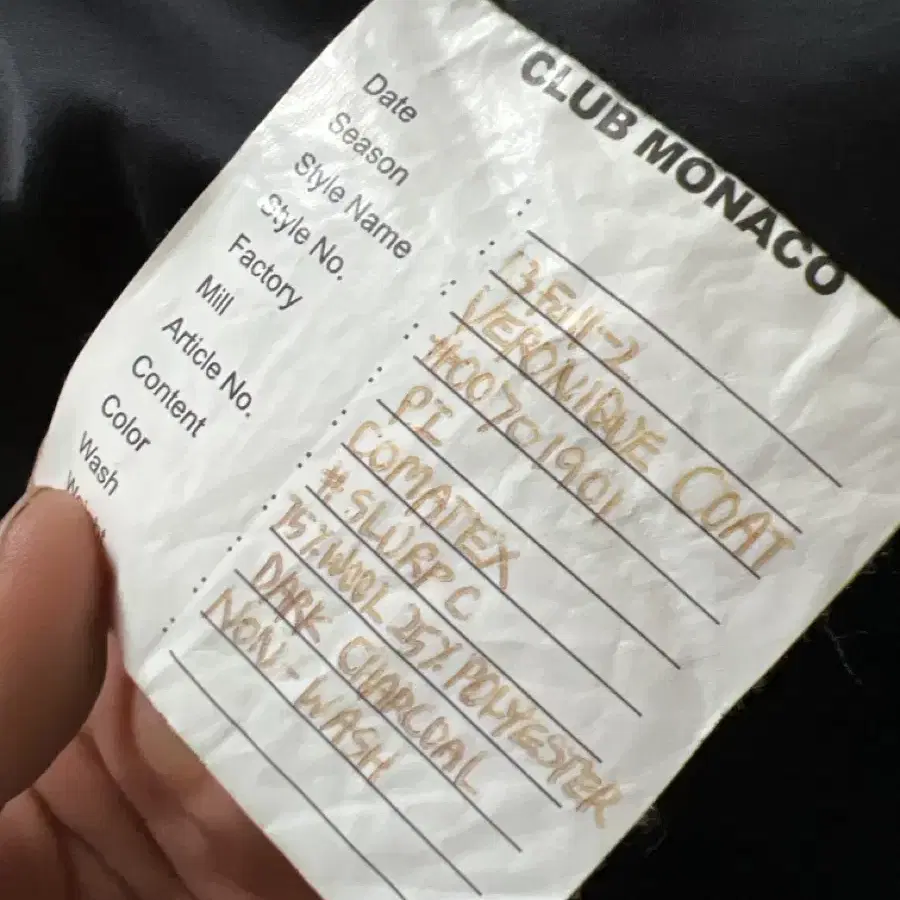 CLUB MONACO
Date
Season 13 Fall-2
Style Name VERONIQUE COAT
Style No. #00701901
Factory PI
Mill COMATEX
Article No. #SLURP C
Content 75% WOOL 25% POLYESTER
Color DARK CHARCOAL
Wash NON-WASH